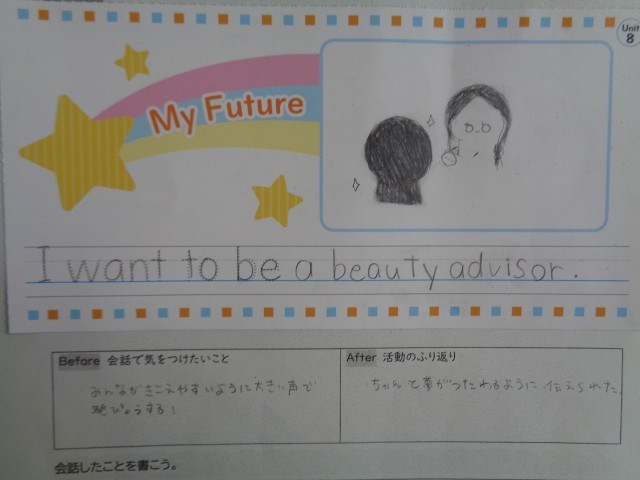 Unit 8
My Future
I want to be a beauty advisor.
Before 会話で気をつけたいこと
みんながきこえやすいように大きい声で
発ぴょうする!
After 活動のふり返り
ちゃんと夢がつたわるように伝えられた。
会話したことを書こう。